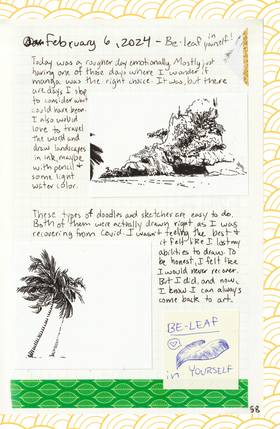 February 6, 2024 - Be-leaf in yourself!
Today was a rougher day emotionally. Mostly just
having one of those days where I wonder if
manga was the right choice. It was, but there
are days I stop
to consider what
could have been.
I also would
love to travel
the world and
draw landscapes
in ink, maybe
with pencil &
some light
water color.
These types of doodles and sketches are easy to do.
Both of them were actually drawn right as I was
recovering from Covid. I wasn't feeling the best &
it felt like I lost my
abilities to draw. To
be honest, I felt like
I would never recover.
But I did, and now,
I know I can always
come back to art.
BE-LEAF
in YOURSELF
58